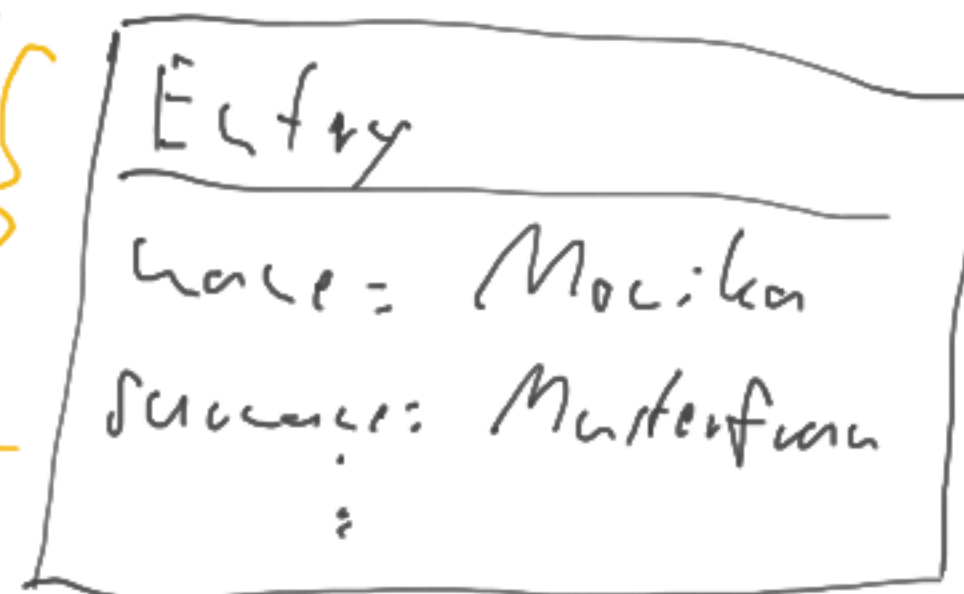 Entry
name: Monika
surname: Musterfrau
: